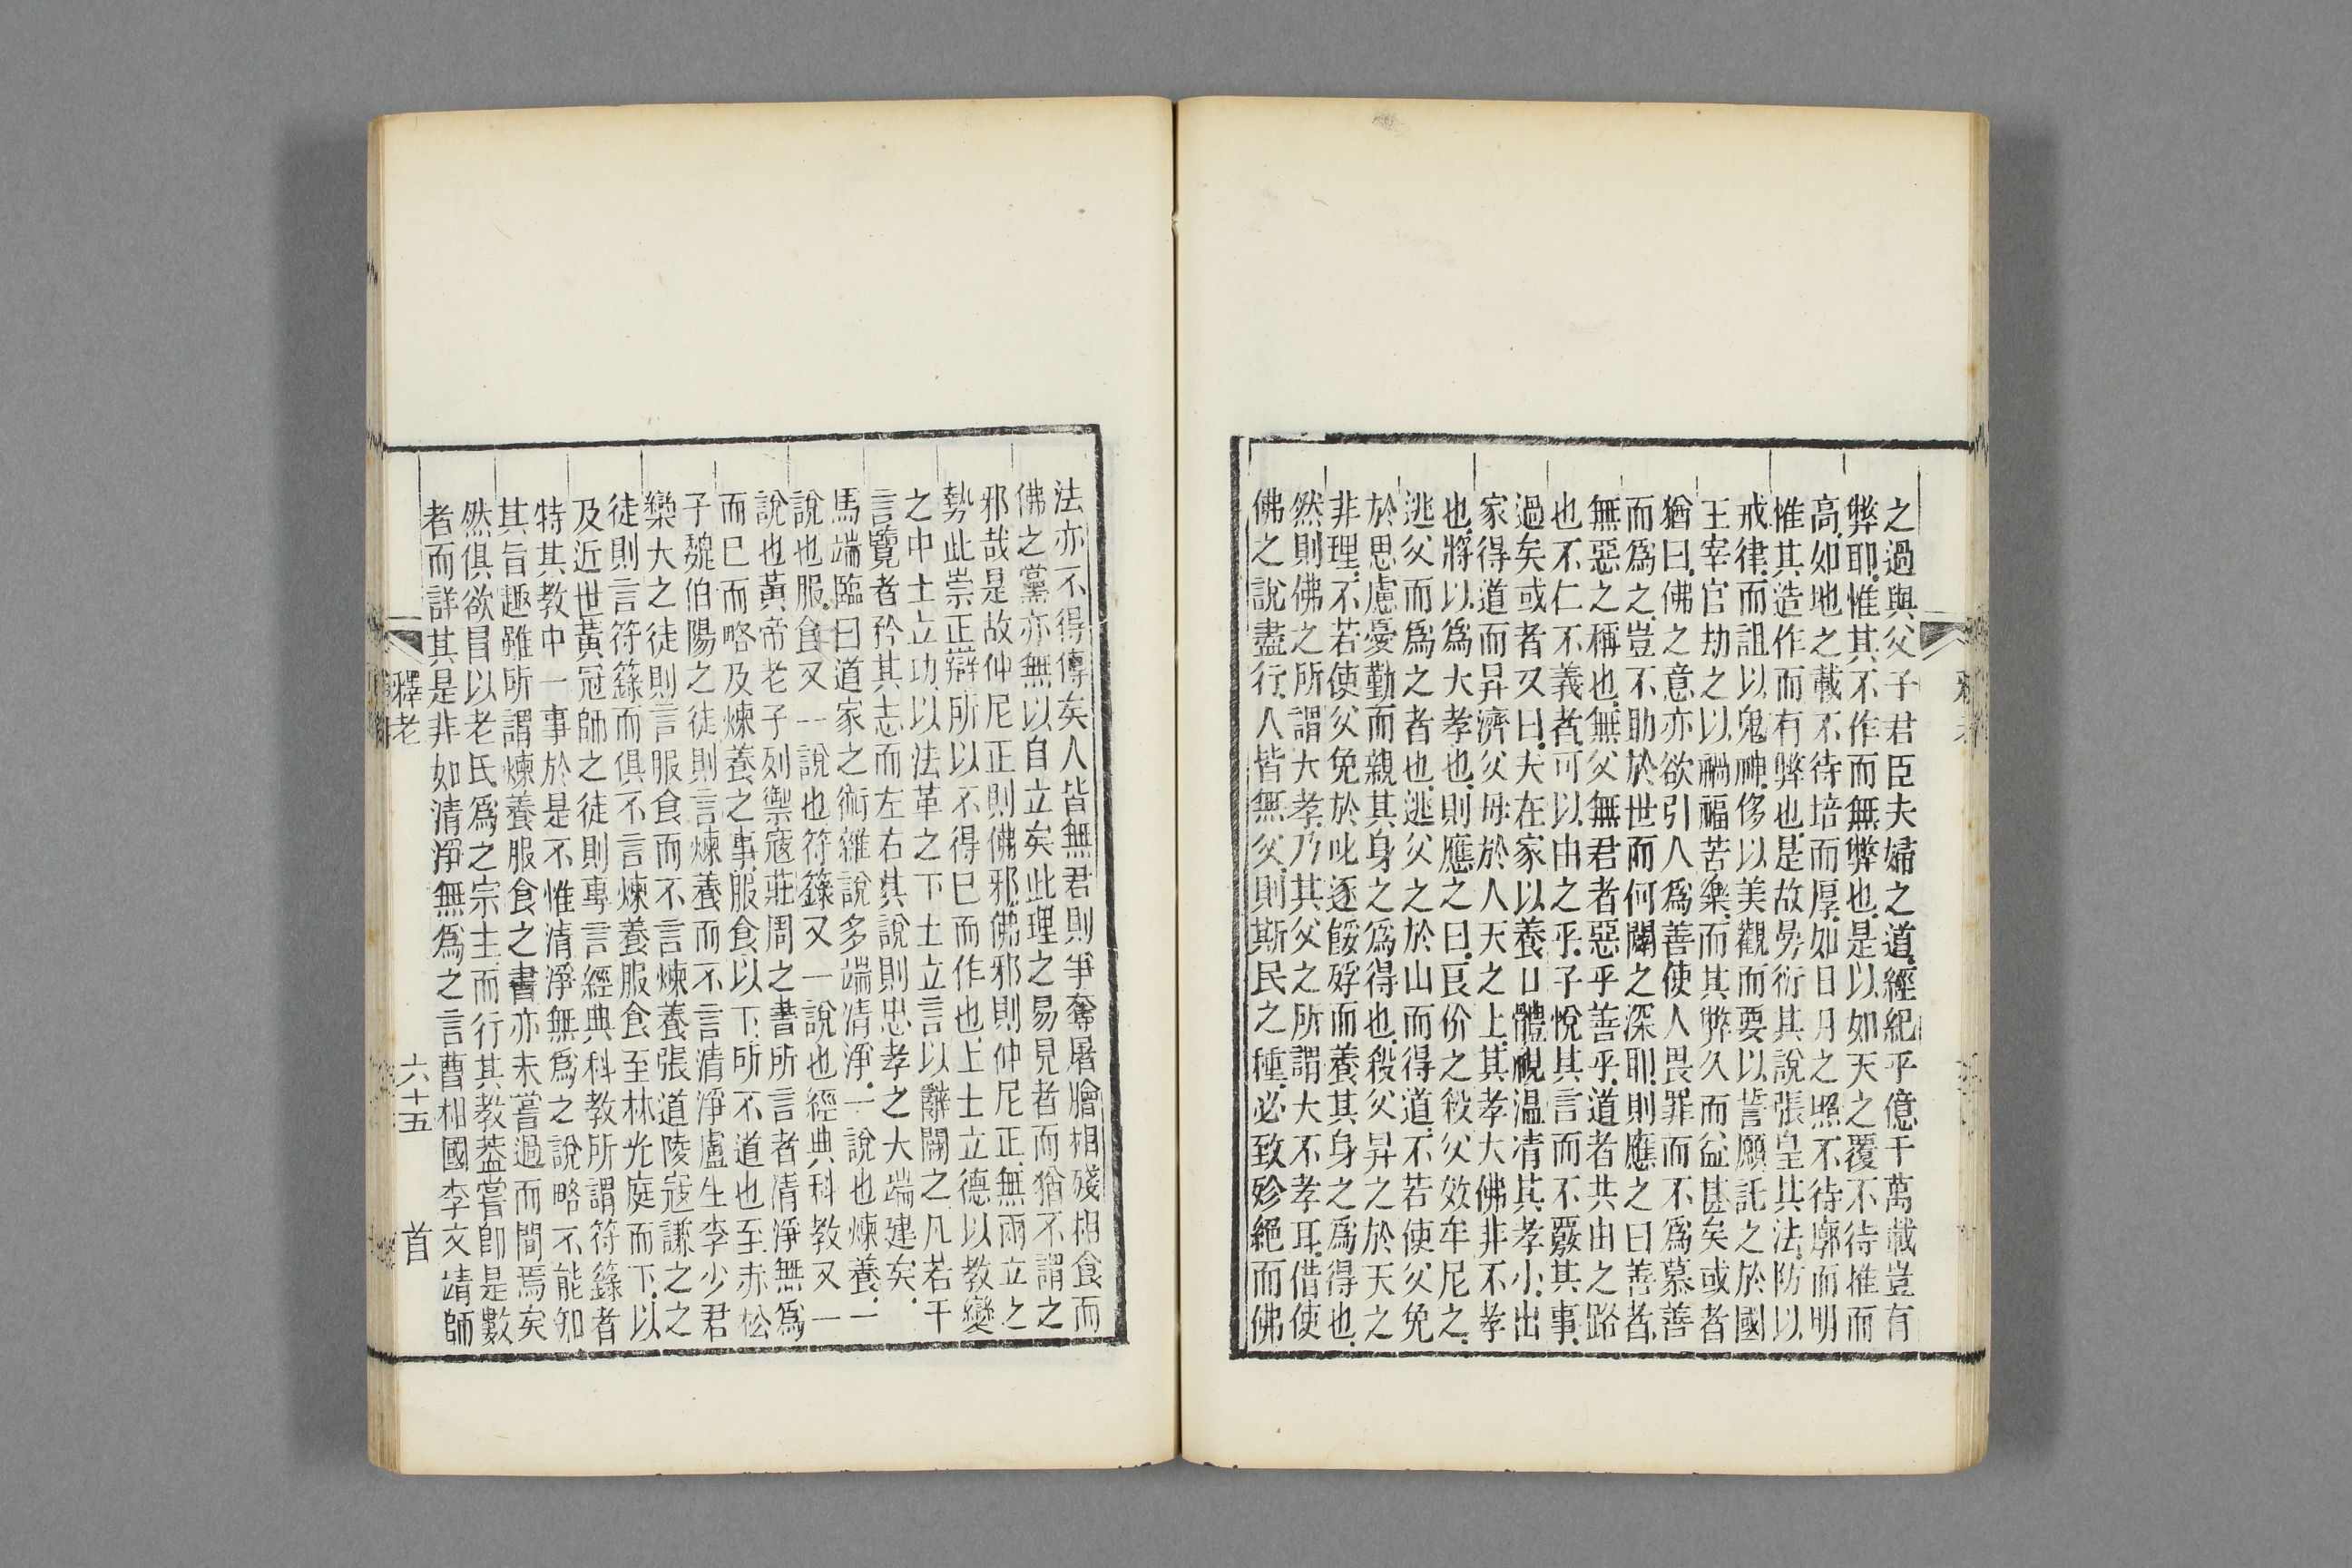 之過與父子君臣夫婦之道經紀乎億千萬載豈有
弊耶惟其不作而無弊也是以如天之覆不待推而
高如地之載不待培而厚如日月之照不待廓而明
惟其造作而有弊也是故昜衍其說張皇其法防以
戒律而詛以鬼神侈以美觀而要以誓願託之於國
王宰官劫之以禍福苦樂而其弊久而益甚矣或者
猶曰佛之意亦欲引人爲善使人畏罪而不爲慕善
而爲之豈不助於世而何闢之深耶則應之曰善者
無惡之稱也無父無君者惡乎善乎道者共由之路
也不仁不義者可以由之乎子悅其言而不覈其事
過矣或者又曰夫在家以養口體視温凊其孝小出
家得道而昇濟父母於人天之上其孝大佛非不孝
也將以爲大孝也則應之曰良价之殺父效牟尼之
逃父而爲之者也逃父之於山而得道不若使父免
於思慮憂勤而親其身之爲得也殺父昇之於天之
非理不若使父免於叱逐餒殍而養其身之爲得也
然則佛之所謂大孝乃其父之所謂大不孝耳借使
佛之說盡行人皆無父則斯民之種必致殄絕而佛
法亦不得傳矣人皆無君則爭奪屠膾相殘相食而
佛之黨亦無以自立矣此理之易見者而猶不謂之
邪哉是故仲尼正則佛邪佛邪則仲尼正無兩立之
勢此崇正辯所以不得已而作也上士立德以教變
之中士立功以法革之下士立言以辭闢之凡若干
言覽者矜其志而左右其說則忠孝之大端建矣
馬端臨曰道家之術雜說多端清淨一說也煉養一
說也服食又一說也符籙又一說也經典科教又一
說也黃帝老子列禦寇莊周之書所言者清淨無爲
而已而略及煉養之事服食以下所不道也至赤松
子魏伯陽之徒則言煉養而不言清淨盧生李少君
欒大之徒則言服食而不言煉養張道陵寇謙之之
徒則言符籙而俱不言煉養服食至杜光庭而下以
及近世黃冠師之徒則專言經典科教所謂符籙者
特其教中一事於是不惟清淨無爲之說略不能知
其旨趣雖所謂煉養服食之書亦未嘗過而問焉矣
然俱欲冒以老氏爲之宗主而行其教葢嘗卽是數
者而詳其是非如清淨無爲之言曹相國李文靖師
釋老 六十五 首